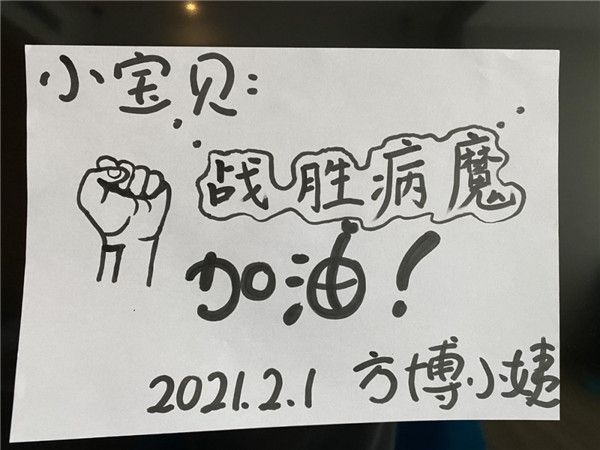 小宝贝:
战胜病魔
加油!
2021.2.1 方博小姨